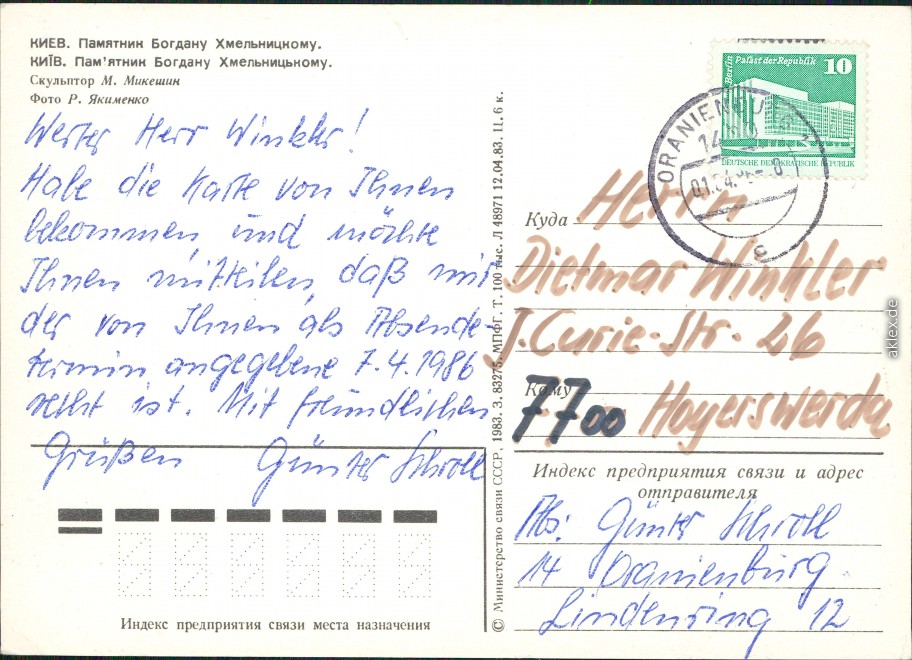 КИЕВ. Памятник Богдану Хмельницкому.
КИЇВ. Пам'ятник Богдану Хмельницькому.
Скульптор М. Микешин
Фото Р. Якименко
Werter Herr Winkler!
Habe die Karte von Ihnen
bekommen, und möchte
Ihnen mitteilen, daß mir
der von Ihnen als Absende-
termin angegebene 7.4.1986
recht ist. Mit freundlichen
Grüßen Günter Schroll
Индекс предприятия связи места назначения
© Министерство связи СССР, 1983. З. 83275. МПФГ. Т. 100 тыс. Л 48971 12.04.83. Ц. 6 к.
Berlin Palast der Republik 10
DEUTSCHE DEMOKRATISCHE REPUBLIK
ORANIENBURG 1
c
Куда Herrn
Dietmar Winkler
J.-Curie-Str. 26
Кому
7700 Hoyerswerda
Индекс предприятия связи и адрес
отправителя
Abs: Günter Schroll
14 Oranienburg
Lindenring 12
aklex.de